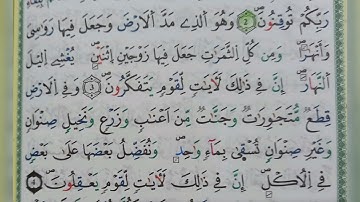 رَبِّكُمْ تُوقِنُونَۖ ۝2 وَهُوَ اَ۬لذِے مَدَّ اَ۬لَارْضَ وَجَعَلَ فِيهَا رَوَٰسِىَ
وَأَنْهَٰراٗۖ وَمِن كُلِّ اِ۬لثَّمَرَٰتِ جَعَلَ فِيهَا زَوْجَيْنِ اِ۪ثْنَيْنِۖ يُغْشِے اِ۬ليْلَ
اَ۬لنَّهَارَۖ إِنَّ فِے ذَٰلِكَ لَأٓيَٰتٖ لِّقَوْمٖ يَتَفَكَّرُونَۖ ۝3 وَفِے اِ۬لَارْضِ
قِطَعٞ مُّتَجَٰوِرَٰتٞ وَجَنَّٰتٞ مِّنَ اَعْنَٰبٖ وَزَرْعٖ وَنَخِيلٖ صِنْوَانٖ
وَغَيْرِ صِنْوَانٖ تُسْق۪يٰ بِمَآءٖ وَٰحِدٖۖ وَنُفَضِّلُ بَعْضَهَا عَلَىٰ بَعْضٖ
فِے اِ۬لُاكْلِۖ إِنَّ فِے ذَٰلِكَ لَأٓيَٰتٖ لِّقَوْمٖ يَعْقِلُونَۖ ۝4